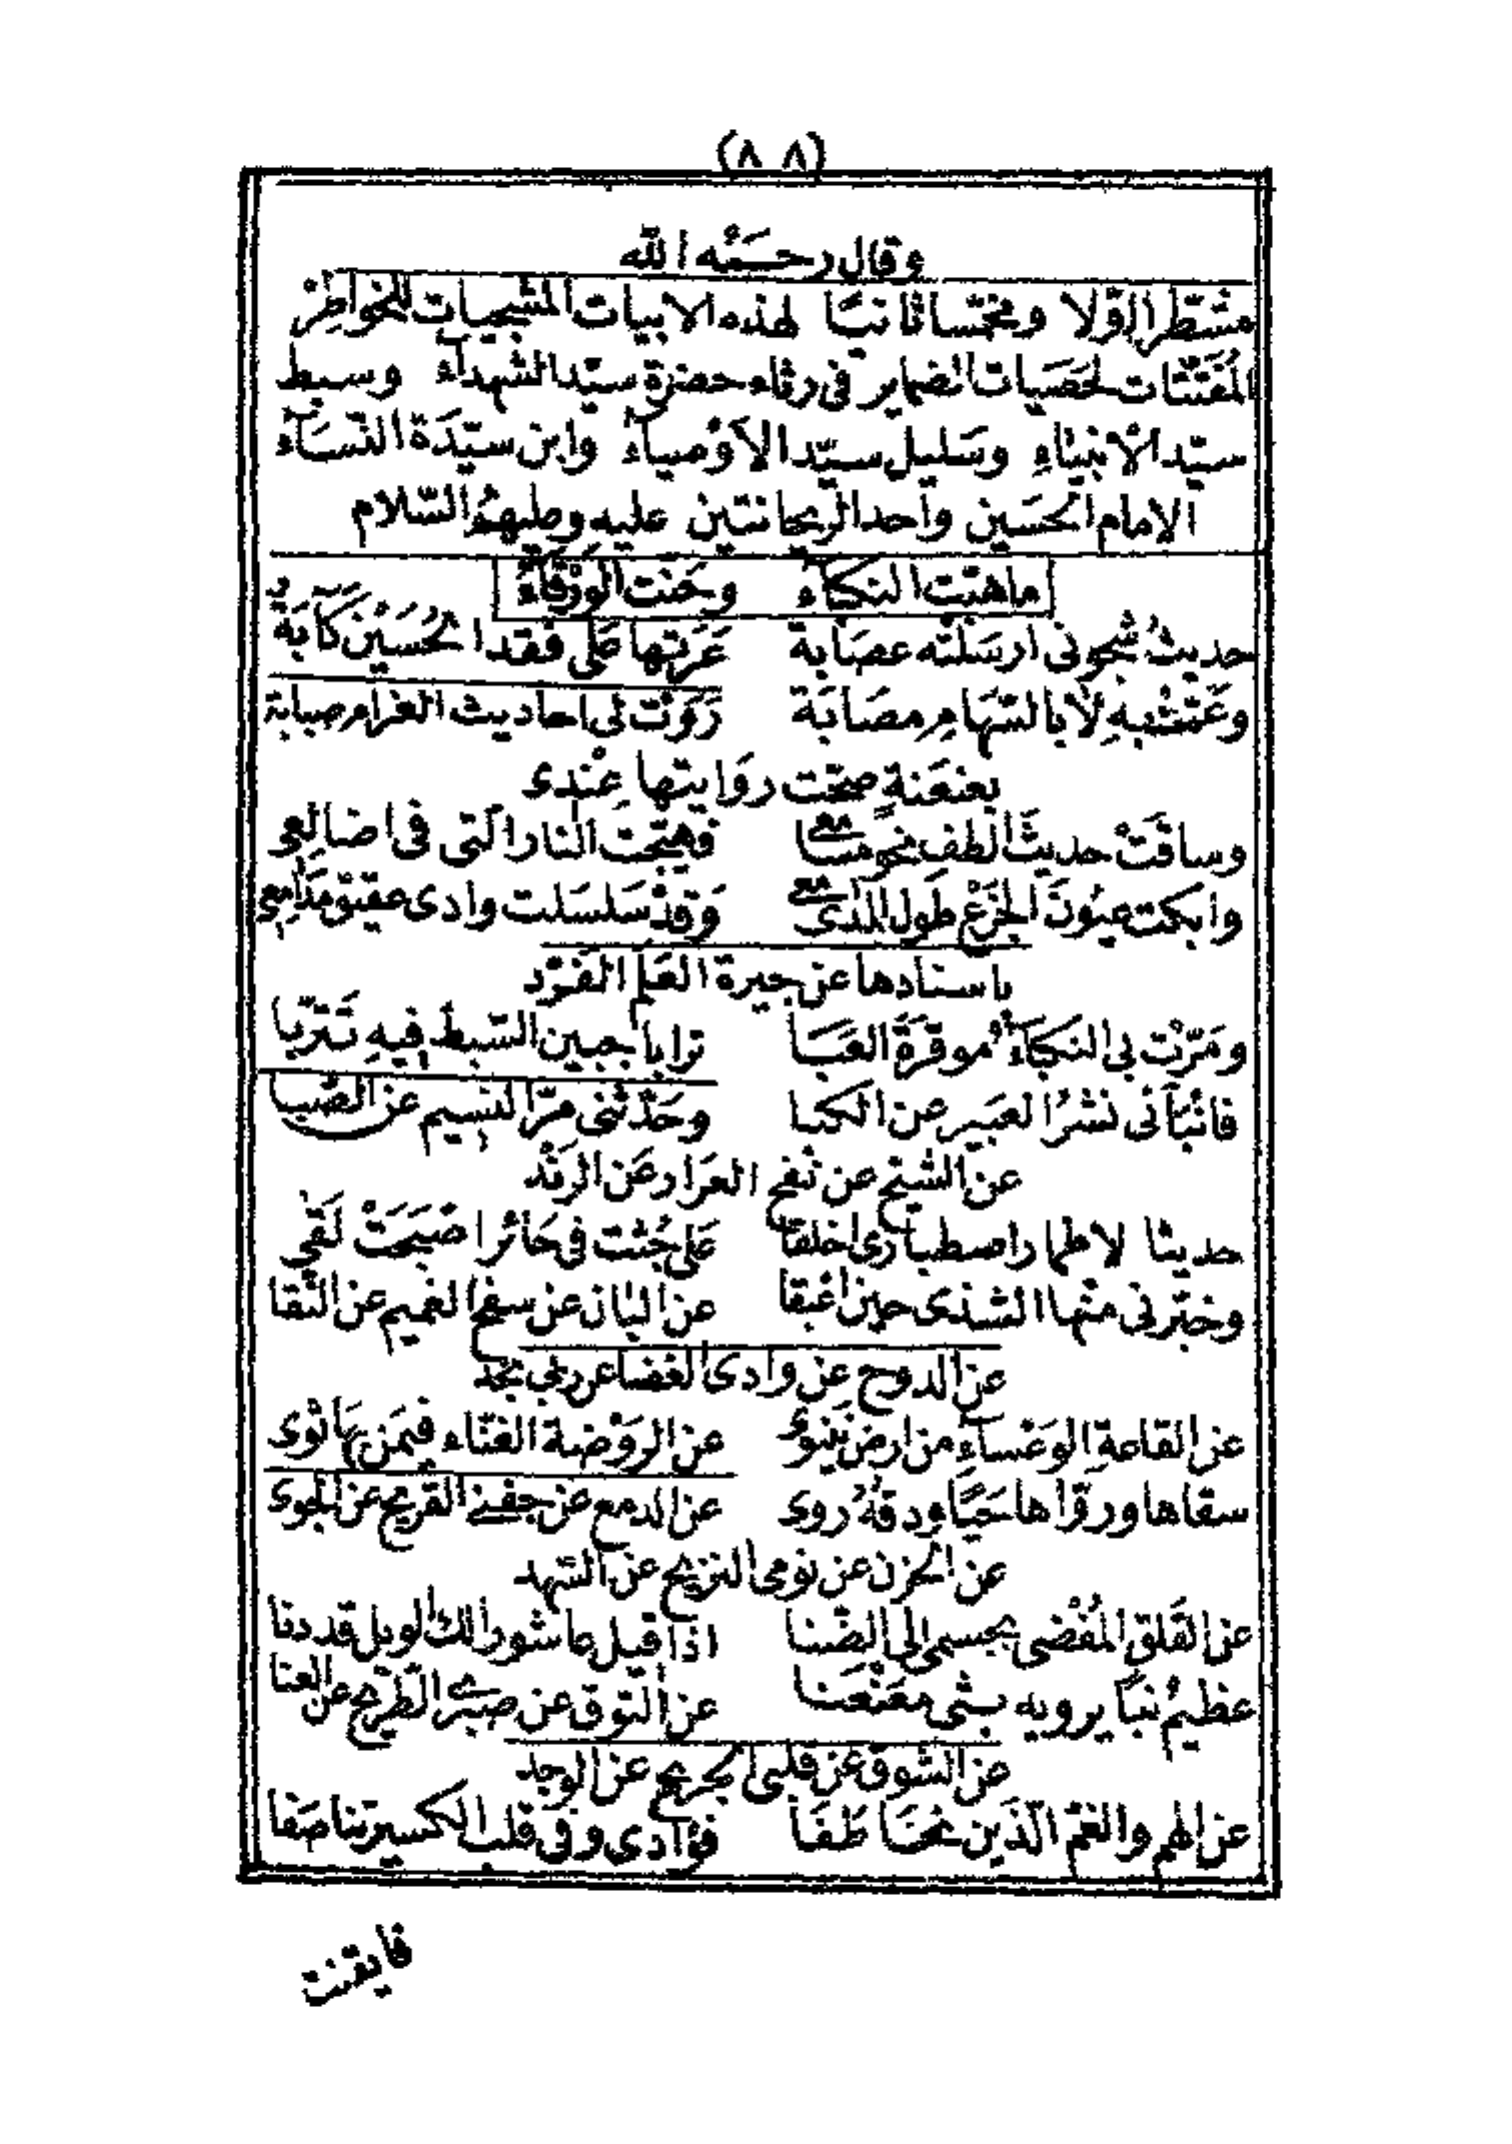 (٨٨)
وقال رحمه الله
مشطرا اوّلا ومخمّسا ثانيًا لهذه الابيات المشجيات للخواطر
المُفَتِّتات لحَصَيات الضماير فى رثاء حضرة سيّد الشهداء وسبط
سيّد الانبياءِ وسَليل سيّد الاَوْصياءِ وابن سيّدَة النّسَاء
الامام الحسَين واحد الريحانتين عليه وعليهمُ السّلام
ما هبّت النكباء وحَنت الوَرْقاء
حديثُ شجونى ارسَلَتْه عصَابة عَرَتها عَلى فقد الحُسَيْن كَآبَةٌ
وعَتْبهِ لا بالسّهَامِ مصَابَة رَوَتْ لى احاديث الغرام صبابة
بعنعَنةٍ صحّت روَايتها عِنْدى
وساقَتْ حديثَ الطف نحو مسامعى فهيّجت النار الّتى فى اضالعى
وابكت عيُونَ الجَزْع طول المدى معى وَقدْ سَلسَلت وادى عقيق مَدَامِعى
باسنادها عن جيرة العَلم الفَرْد
ومَرّتْ بى النكباءُ موقرَةَ العَبَا ترابا جبين السّبط فيهِ تَترّبا
فانْبأنى نشرُ العبير عن الكبا وحَدّثنى مرّ النسيم عن الصّبا
عن الشيح عن نفح العَرار عَن الرَنْد
حديثا لاطمار اصطبارى اخلقا عَلى جُثت فى حَائر اصْبَحَتْ لَقى
وخبّرنى منها الشذى حين اعبقا عن البان عن سفح الغميم عن النّقا
عن الدوح عن وادى الغضا عن ربى نجد
عن القاعةِ الوَعْساءِ من ارض نينوى عن الروْضة الغنّاء فيمَن بهَا ثوى
سقاها وروّاها حيًا ودقهُ روى عن الدمع عن جفنى القريح عن الجوى
عن الحزن عن نومى النزيح عن السّهد
عن القَلق المُفْضى بجسمى الى الضّنا اذا قيل عاشورا لك الويل قد دنا
عظيمُ نبًا يرويه بثى معَنْعَنا عن التوق عن صبرى الطّريح عن العنا
عن الشوق عن قلبى الجريح عن الوجد
عن الهم والغمّ الّذين تحَا طَفَا فؤادى وفى قلب الكسير تناصَفا
فايقنت